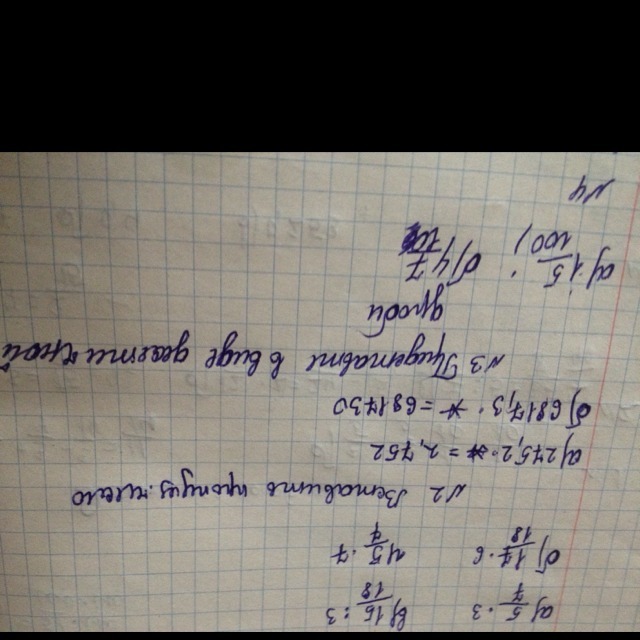 а) 5/7 · 3 в) 15/18 : 3
б) 17/18 · 6 4 5/7 · 7
№2 Вставить пропущ. число
а) 275,2 · * = 2,752
б) 6817,3 · * = 681730
№3 Представте в виде десятичной
дроби
а) 15/100; б) 4 7/10
№4